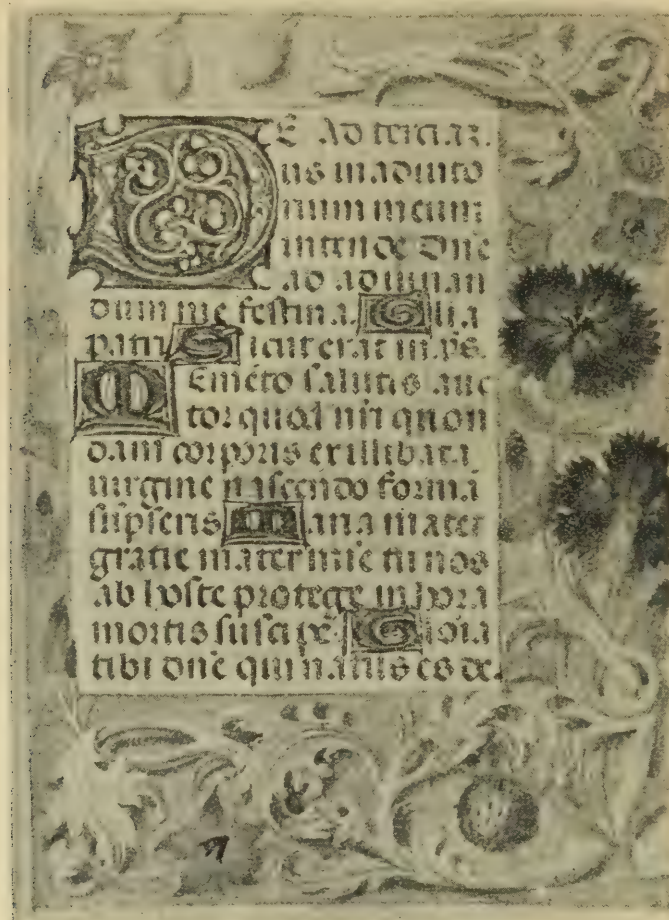 DE Ad terciaz.
us in adiuto
rium meum
intende Dne
ad adiuuan
dum me festina. Glia
patri Sicut erat in p̄s.
Memēto salutis auc
tor quod nr̄i quon
dam corporis ex illibata
uirgine nascendo formā
sūpseris Maria mater
gratie mater mīe tu nos
ab hoste protege in hora
mortis suscipe. Gloria
tibi dnē qui natus es de